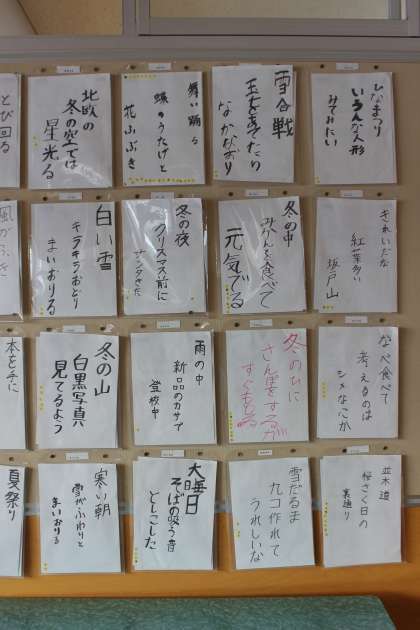 ひなまつり
いろんな人形
みてみたい
雪合戦
玉をあてたら
なかなおり
舞い踊る
蝶のうたげと
花山ぶき
北欧の
冬の空では
星光る
とび回る
きれいだな
紅葉多い
坂戸山
冬の中
みかんを食べて
元気でる
冬の夜
クリスマス前に
サンタきた
白い雪
キラキラおどり
まいおりる
なべ食べて
考えるのは
シメなにか
冬のひに
さんぽをするが
雨の中
新品のカサで
登校中
冬の山
白黒写真
見てるよう
本を手に
並木道
桜さく日の
裏通り
雪だるま
九コ作れて
うれしいな
大晦日
そばの吸う音
どしこした
寒い朝
雪がふわりと
まいおりる
夏祭り